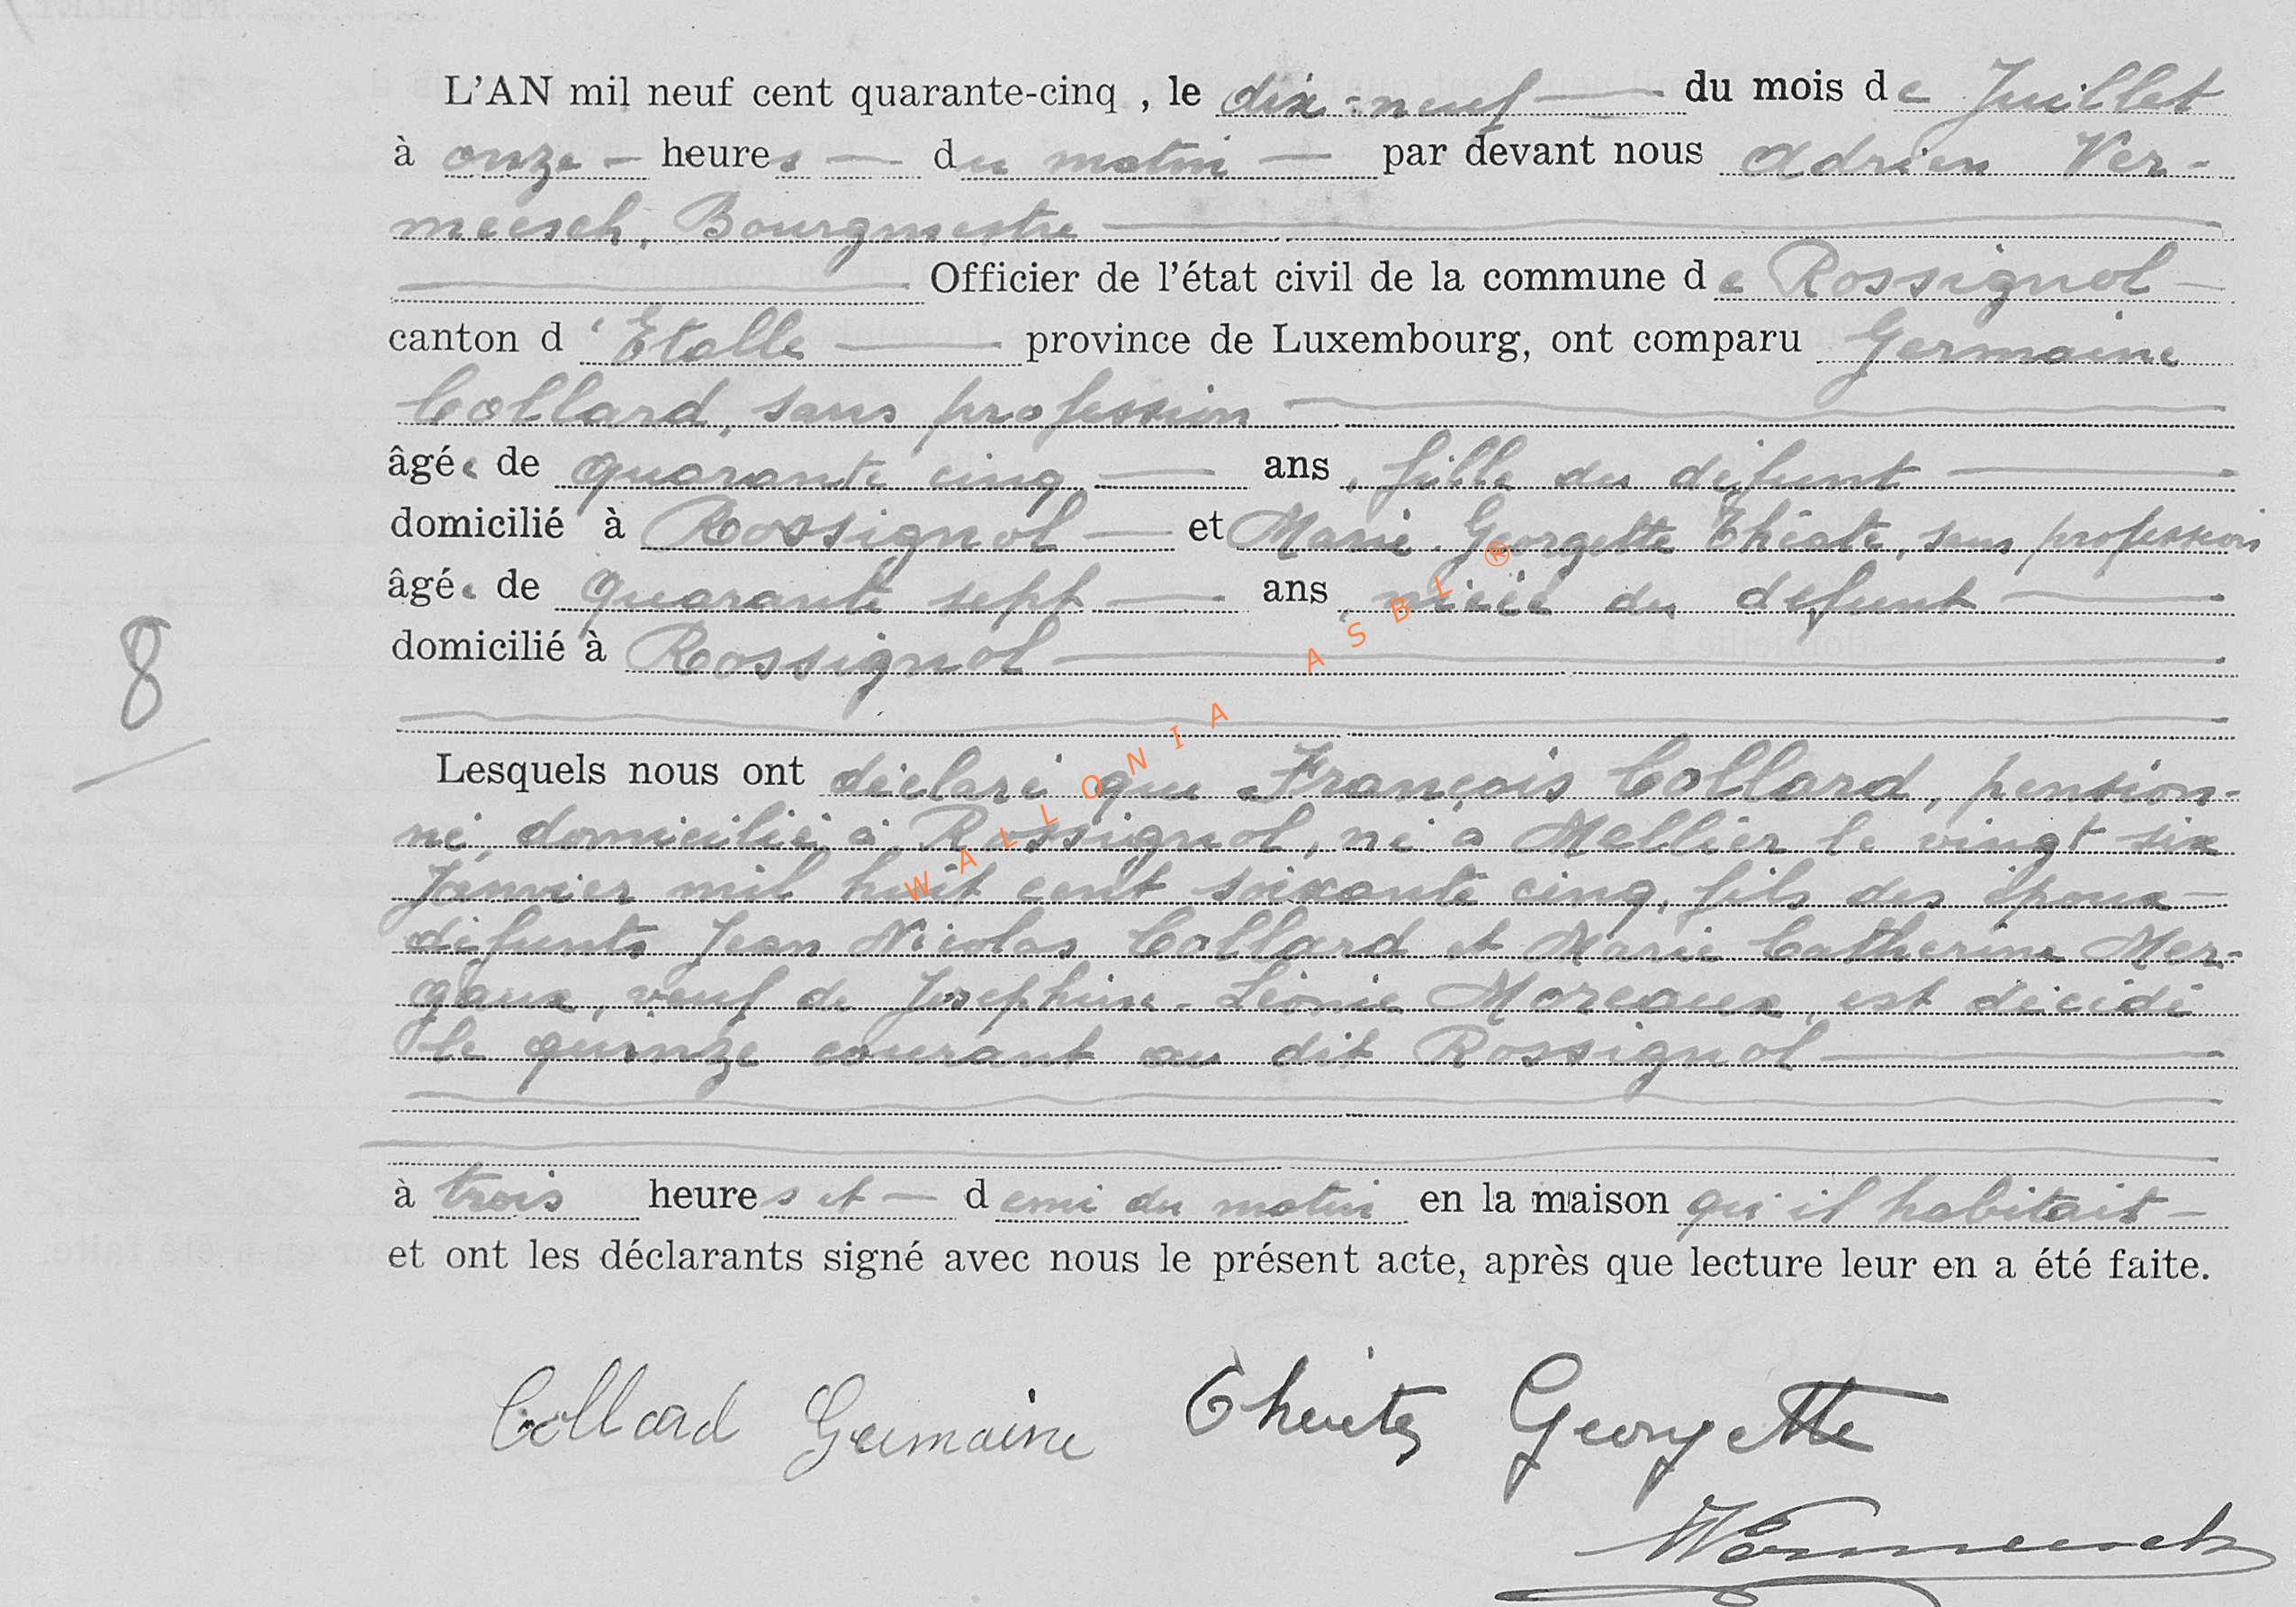 L'AN mil neuf cent quarante-cinq , le dix-neuf du mois de Juillet
à onze heures du matin par devant nous Adrien Ver-
meesch, Bourgmestre
Officier de l'état civil de la commune de Rossignol
canton d'Etalle province de Luxembourg, ont comparu Germaine
Collard, sans profession
âgée de quarante cinq ans, fille du défunt
domicilié à Rossignol et Marie-Georgette Théate, sans profession
âgée de quarante sept ans, nièce du défunt
domicilié à Rossignol
8
Lesquels nous ont déclaré que François Collard, pension-
né, domicilié à Rossignol, né à Mellier le vingt six
Janvier mil huit cent soixante cinq, fils des époux
défunts Jean Nicolas Collard et Marie Catherine Mer-
gaux, veuf de Josephine-Léonie Moreaux, est décédé
le quinze courant au dit Rossignol
à trois heures et demi du matin en la maison qu'il habitait
et ont les déclarants signé avec nous le présent acte, après que lecture leur en a été faite.
Collard Germaine Georgette
Vermeesch
WALLONIA ASBL ®